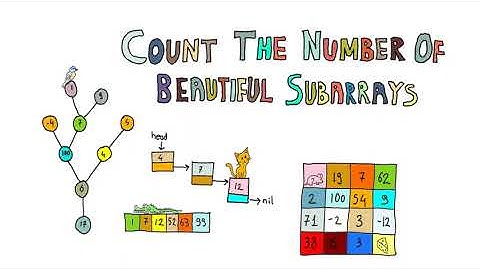 COUNT THE NUMBER OF
BEAUTIFUL SUBARRAYS
1
9
-4
7
5
100
4
6
17
head
4
7
12
nil
1 7 12 52 63 99
19 7 62
2 100 54 9
71 -2 3 -12
38 3